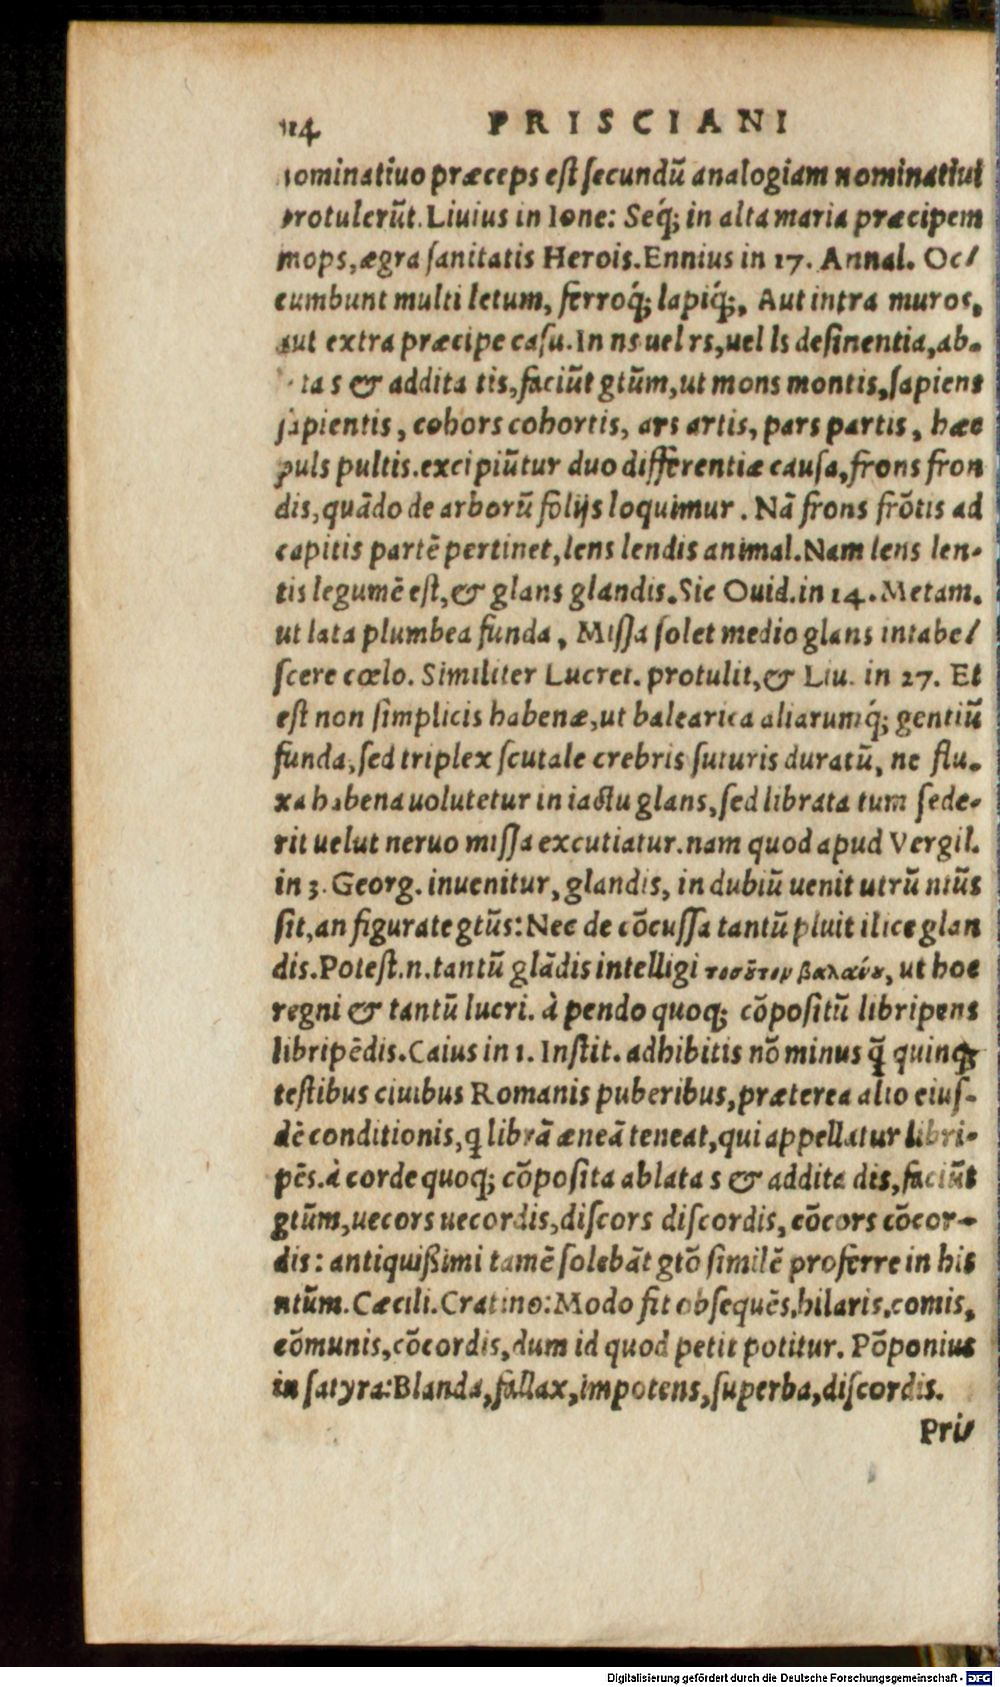 114 PRISCIANI
nominatiuo præceps est secundū analogiam nominatiui
protulerūt. Liuius in Ione: Seq́; in alta maria præcipem
mops, ægra sanitatis Herois. Ennius in 17. Annal. Oc/
cumbunt multi letum, ferroq́; lapiq́;, Aut intra muros,
aut extra præcipe casu. In ns uel rs, uel ls desinentia, ab-
ta s & addita tis, faciūt gtūm, ut mons montis, sapiens
sapientis, cohors cohortis, ars artis, pars partis, hæc
puls pultis. excipiūtur duo differentiæ causa, frons fron
dis, quādo de arborū folijs loquimur. Nā frons frōtis ad
capitis partē pertinet, lens lendis animal. Nam lens len-
tis legumē est, & glans glandis. Sic Ouid. in 14. Metam.
ut lata plumbea funda, Missa solet medio glans intabe/
scere cœlo. Similiter Lucret. protulit, & Liu. in 27. Et
est non simplicis habenæ, ut balearica aliarumq́; gentiū
funda, sed triplex scutale crebris suturis duratū, ne flu-
xa habena uolutetur in iactu glans, sed librata tum sede-
rit uelut neruo missa excutiatur. nam quod apud Vergil.
in 3. Georg. inuenitur, glandis, in dubiū uenit utrū ntūs
sit, an figurate gtūs: Nec de cōcussa tantū pluit ilice glan
dis. Potest. n. tantū glādis intelligi τοσȣ̃τον βαλάνȣ, ut hoc
regni & tantū lucri. à pendo quoq; cōpositū libripens
libripēdis. Caius in 1. Instit. adhibitis nō minus q̄ quinq;
testibus ciuibus Romanis puberibus, præterea alio eius-
dē conditionis, q librā æneā teneat, qui appellatur libri-
pēs. à corde quoq; cōposita ablata s & addita dis, faciūt
gtūm, uecors uecordis, discors discordis, cōcors cōcor-
dis: antiquißimi tamē solebāt gtō similē proferre in his
ntūm. Cæcili. Cratino: Modo fit obsequēs, hilaris, comis,
cōmunis, cōcordis, dum id quod petit potitur. Pōponius
in satyra: Blanda, fallax, impotens, superba, discordis.
Pris
Digitalisierung gefördert durch die Deutsche Forschungsgemeinschaft - DFG